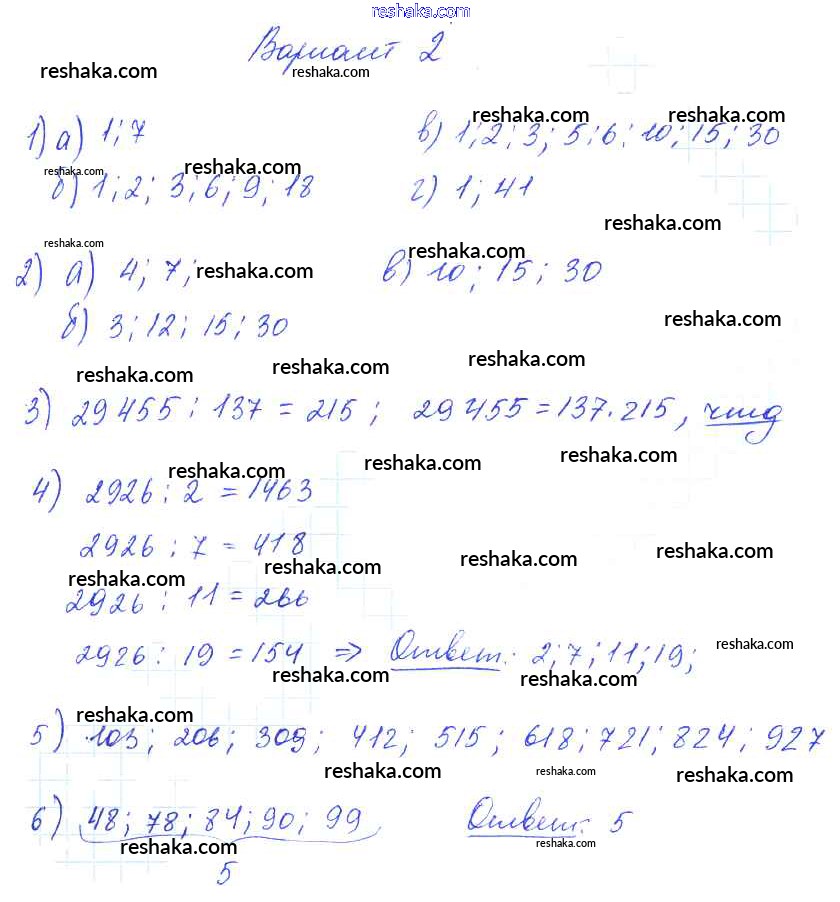 reshaka.com
Вариант 2
reshaka.com reshaka.com
1) а) 1; 7 в) 1; 2; 3; 5; 6; 10; 15; 30
reshaka.com reshaka.com
reshaka.com reshaka.com
б) 1; 2; 3; 6; 9; 18 г) 1; 41
reshaka.com
reshaka.com reshaka.com
2) а) 4; 7; в) 10; 15; 30
reshaka.com
б) 3; 12; 15; 30
reshaka.com
reshaka.com reshaka.com reshaka.com
3) 29 455 : 137 = 215; 29 455 = 137 · 215, чтд
reshaka.com reshaka.com reshaka.com
4) 2926 : 2 = 1463
2926 : 7 = 418
reshaka.com reshaka.com reshaka.com reshaka.com
2926 : 11 = 266
2926 : 19 = 154 ⇒ Ответ: 2; 7; 11; 19;
reshaka.com
reshaka.com reshaka.com
reshaka.com
5) 103; 206; 309; 412; 515; 618; 721; 824; 927
reshaka.com reshaka.com reshaka.com
6) 48; 78; 84; 90; 99 Ответ: 5
reshaka.com reshaka.com
5